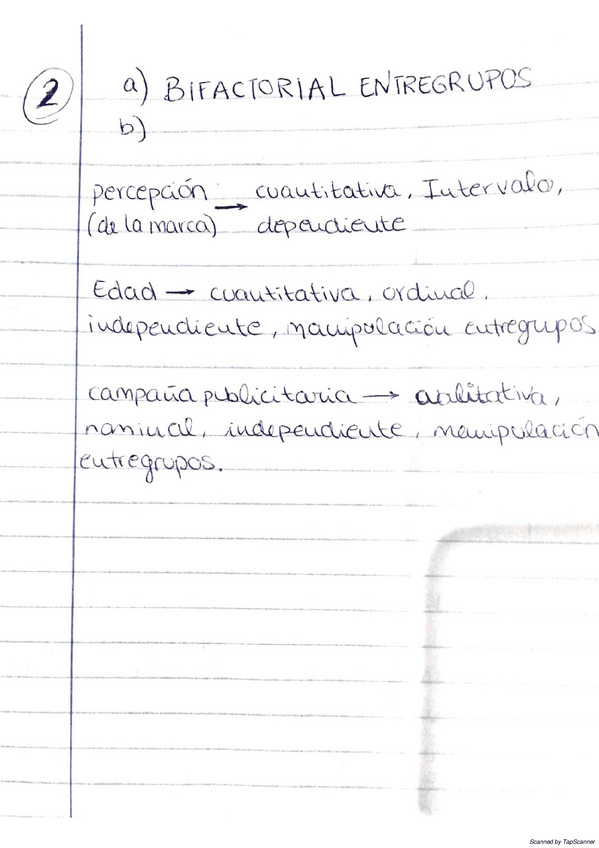 2
a) BIFACTORIAL ENTREGRUPOS
b)
percepción → cuantitativa, Intervalo,
(de la marca) dependiente
Edad → cuantitativa, ordinal,
independiente, manipulación entregrupos
campaña publicitaria → cualitativa,
nominal, independiente, manipulación
entregrupos.
Scanned by TapScanner